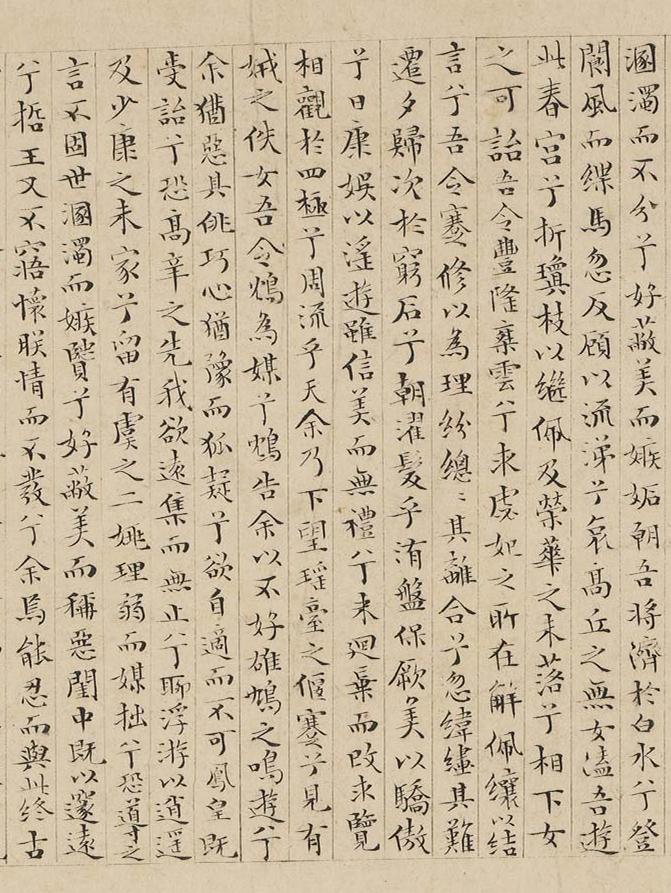 溷濁而不分兮好蔽美而嫉妬朝吾將濟於白水兮登
閬風而緤馬忽反顧以流涕兮哀高丘之無女溘吾遊
此春宮兮折瓊枝以繼佩及榮華之未落兮相下女
之可詒吾令豐隆椉雲兮求虙妃之所在解佩纕以結
言兮吾令蹇修以為理紛總〻其離合兮忽緯繣其難
遷夕歸次於窮石兮朝濯髮乎洧盤保厥美以驕傲
兮日康娛以滛遊雖信美而無禮兮来迴棄而改求覽
相觀於四極兮周流乎天余乃下望瑶臺之偃蹇兮見有
娀之佚女吾令鴆為媒兮鴆告余以不好雄鳩之鳴遊兮
余猶惡其佻巧心猶豫而狐疑兮欲自適而不可鳳皇既
受詒兮恐高辛之先我欲遠集而無止兮聊浮游以逍遥
及少康之未家兮留有虞之二姚理弱而媒拙兮恐導之
言不固世溷濁而嫉賢兮好蔽美而稱惡閨中既以邃遠
兮哲王又不寤懷朕情而不發兮余焉能忍而與此終古